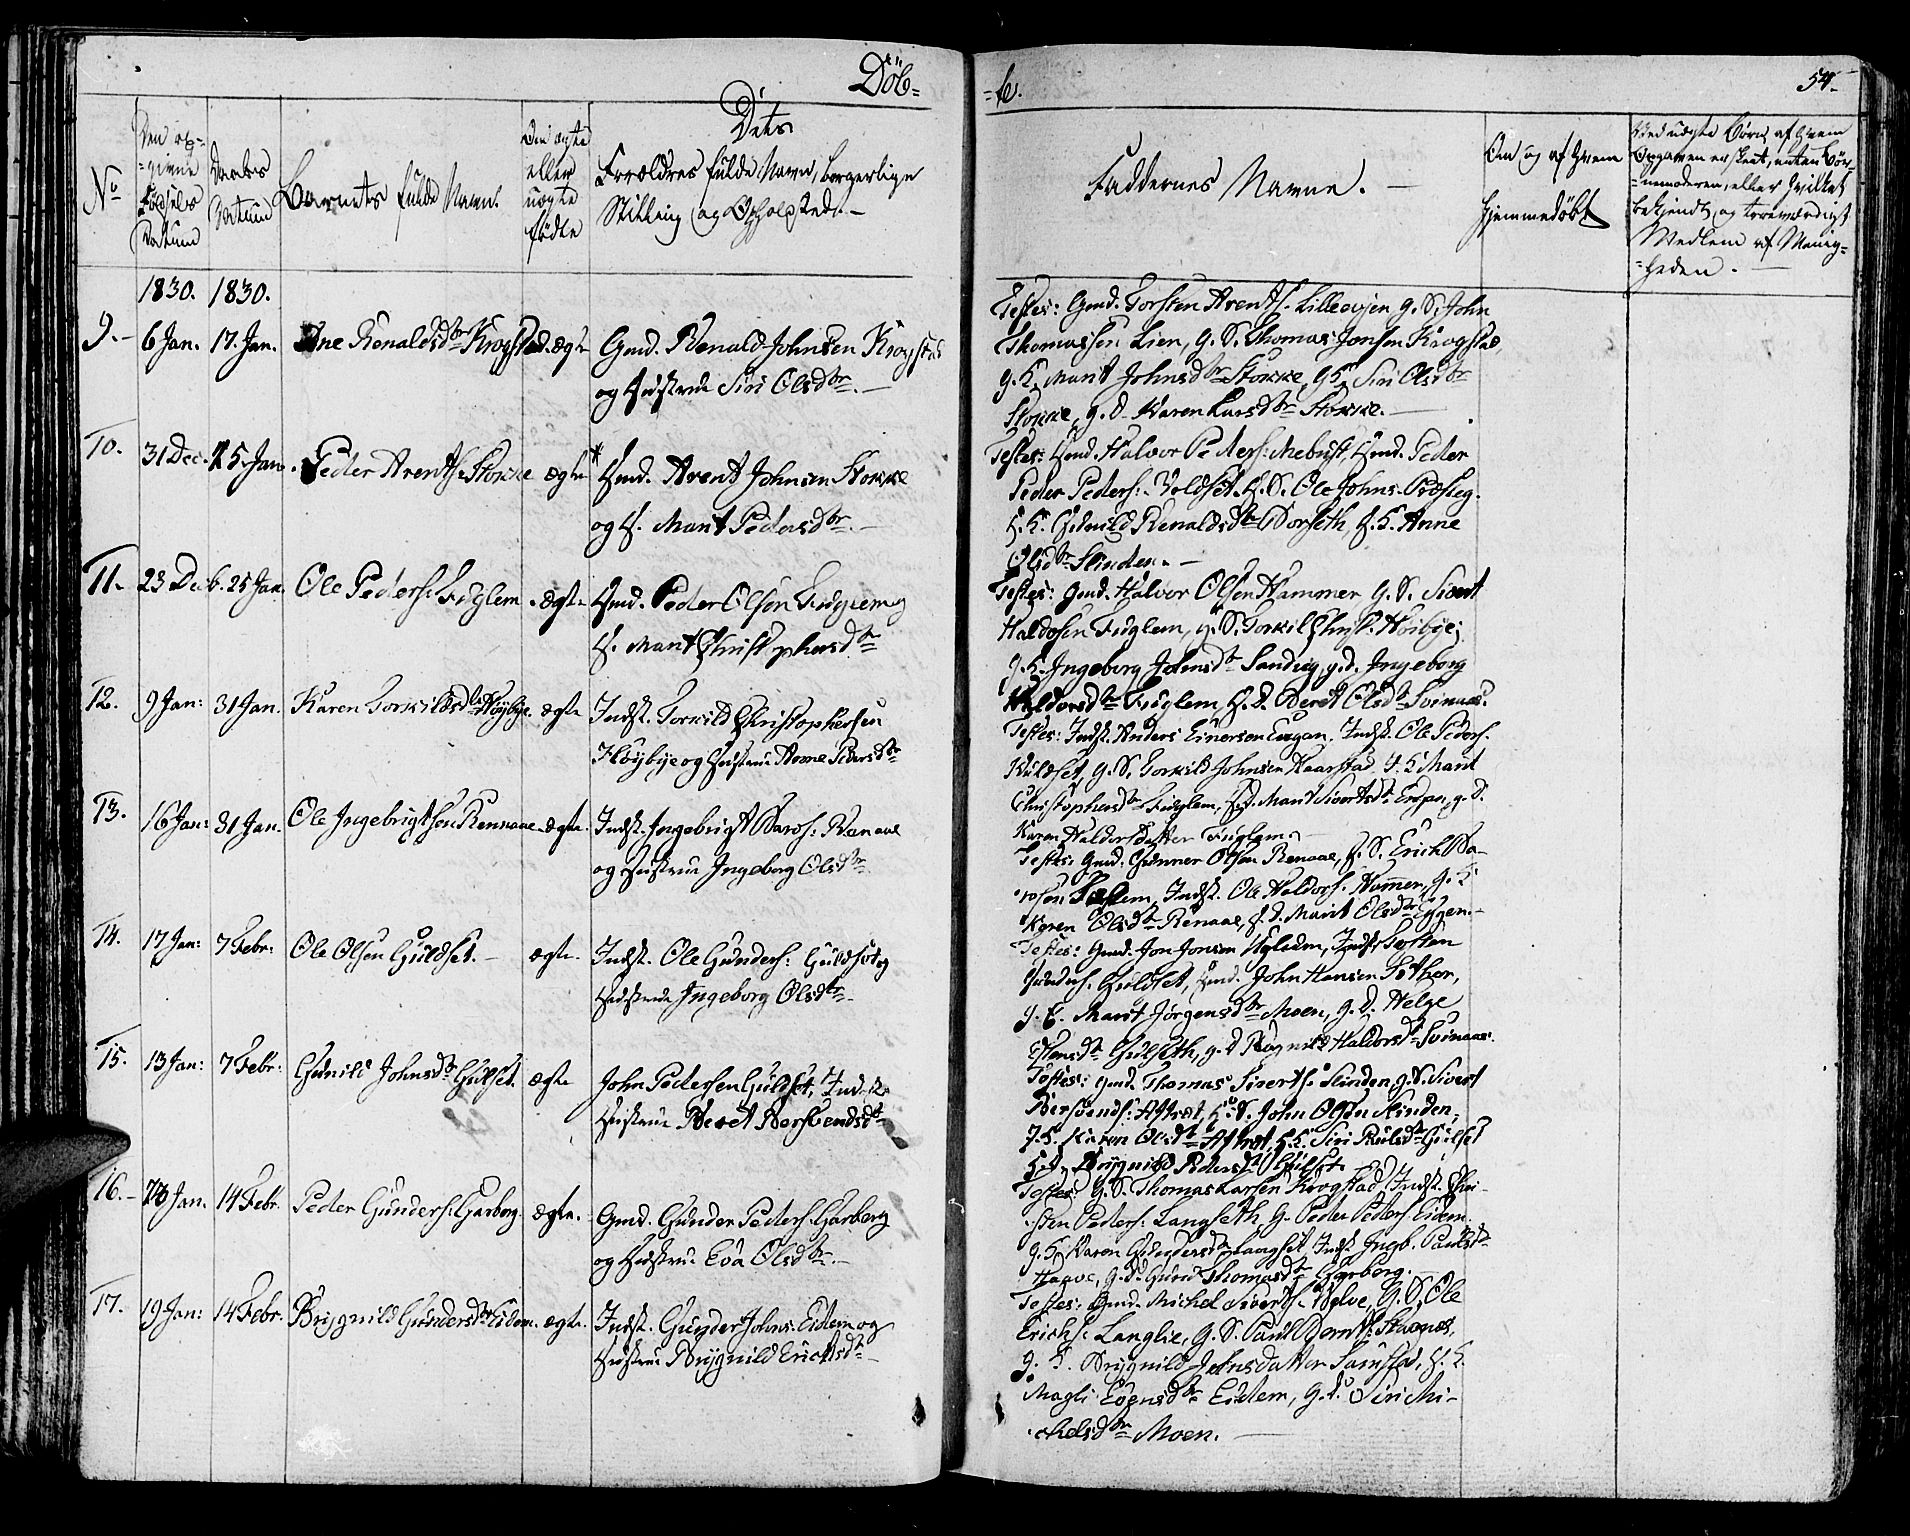 Döb-
-te.
54.
No
Den op-
-givne
Fødsels
Datum
Daabs
Datum
Barnets fulde Navn.
Om ægte
eller
uægte
fødte
Dets
Forældres fulde Navn, borgerlige
Stilling og Opholdsted. -
Faddernes Navne. -
Om og af hvem
hjemmedøbt
Ved uægte Børn, af hvem
Opgaven er skeet, enten Bør-
-nemoderen, eller hvilket
bekjendt og troeværdigt
Medlem af Menig-
-heden. -
1830. 1830.
9. - 6 Jan. 17. Jan. Ane Renaldsdtr Krogstad. ægte Gmd. Renald Johnsen Krogstad
og Hustrue Siri Olsdtr. -
Testes: Gmd. Torsten Arents. Lilleevjen g. S. John
Thomassen Lien, g. S. Thomas Jonsen Krogstad,
g. K. Marit Johnsdtr Stokke, g K. Siri Olsdtr
Stokke, g. d. Karen Larsdtr Stokke. -
10. 31 Dec. 25. Jan. Peder Arents. Stokke ægte Hmd. Arent Johnsen Stokke
og H. Marit Pedersdtr. -
Testes: Hmd. Halvor Peders: Mebust, Hmd. Peder
Peder Peders: Voldset. H. S. Ole Johns.
H. K. Gunild Renaldsdtr Borseth, H. K. Anne
Olsdtr Slinden. -
11. 23 Decb. 25 Jan. Ole Peders: Fuglem. ægte Hmd. Peder Olsen Fuglem og
H. Marit Christophersdtr
Testes: Gmd. Halvor Olsen Hammer g. S. Sivert
Haldosen Fuglem, g. S. Torkil Christ. Höibye;
g. K. Ingeborg Johnsdtr Sandvig, g. d. Ingeborg
Haldorsdtr Fuglem, H. d. Beret Olsdtr Svinaas.
12. 9 Jan: 31 Jan. Karen Torkildsdtr Höybye. ægte Indst. Torkild Christophersen
Höybye og Hustrue Anne Pedersdtr
Testes: Indst. Anders Einersen Eggen, Indst. Ole Peders.
Kuldset, g. S. Torkild Johnsen Haarstad, H. K. Marit
Christophersdtr Fuglem, H. Marit Sivertsdtr g. d.
Karen Haldorsdatter Fuglem. -
13. 16 Jan: 31 Jan. Ole Ingebrigtsen Rennaae. ægte. Indst. Ingebrigt Baros: Renaae
og Hustrue Ingeborg Olsdtr.
Testes: Gmd. Gunner Olsen Renaae, H. S. Erich Ba-
-rosen Fuglem, Indst. Ole Haldors. Hammer, g. K.
Karen Olsdtr Renaae, H. d. Marit Olsdtr Eggen. -
14. 17 Jan: 7 Febr. Ole Olsen Guldset. - ægte. Indst. Ole Gunders: Guldset og
Hustrue Ingeborg Olsdtr. -
Testes: Gmd. Jon Jonsen Uglem, Indst. Esten
Gunders. Guldset, Hmd. John Hansen
g. K. Marit Jörgensdtr Moen, g. d. Helge
Estensdtr Gulseth, g. d. Ragnild Haldorsdtr Svinaas.
15. 13 Jan: 7 Febr. Gunild Johnsdtr Gulset. ægte John Pedersen Gulset, Indst.
Hustrue Beret Bersvendsdtr
Testes: Gmd. Thomas Siverts. Slinden, g. S. Sivert
Bersvends: Aftret, H. S. John Olsen Slinden,
g. K. Karen Olsdtr Aftret, H. K. Siri Paulsdtr Gulset
H. d. Brygnild Pedersdtr Gulset.
16. - 23 Jan. 14 Febr. Peder Gunders: Garberg. ægte. Gmd. Gunder Peders. Garberg
og Hustrue Eva Olsdtr. -
Testes: g. S. Thomas Larsen Krogstad, Indst. Chri-
-sten Peders: Langseth, g. Peder Peders. Eidem.
g. K. Karen Gundersdtr Langset, Indst. Ingb. Paulsdtr
g. d. Guru Thomasdtr Garberg. -
17. 19 Jan: 14 Febr. Brygnild Gundersdtr Eidem. ægte. Indst. Gunder Johns. Eidem og
Hustrue Brygnild Erichsdtr -
Testes: Gmd. Michel Siverts. Selve, g. S. Ole
Erichs. Langlie, g. S. Paul Bernts.
g. K. Brygnild Johnsdatter Samstad, H. K.
Magli Evensdtr Eidem, g. d. Siri Mi-
-chelsdtr Moen. -